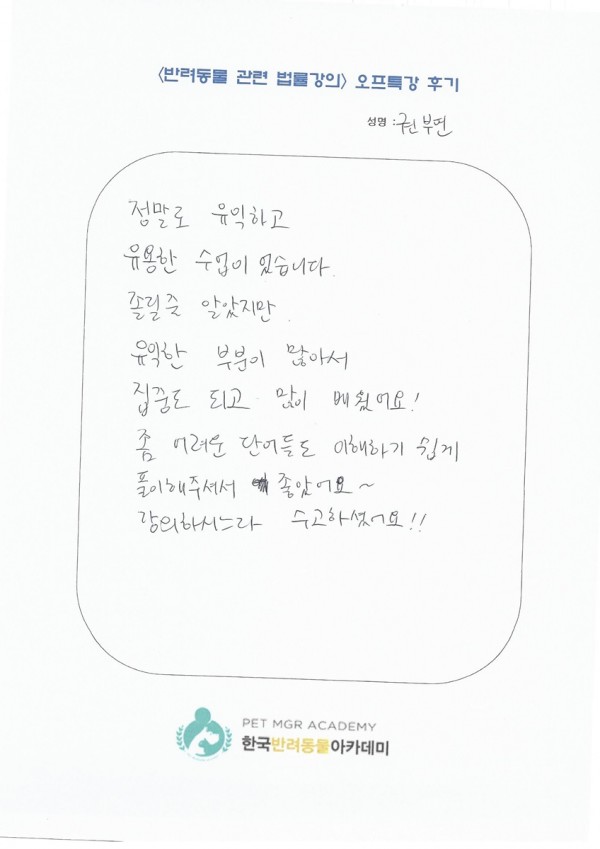 <반려동물 관련 법률강의> 오프특강 후기
성명 : 권부연
정말로 유익하고
유용한 수업이 었습니다.
졸릴줄 알았지만.
유익한 부분이 많아서
집중도 되고 많이 배웠어요!
좀 어려운 단어들도 이해하기 쉽게
풀이해주셔서 좋았어요~
강의하시느라 수고하셨어요!!
PET MGR ACADEMY
한국반려동물아카데미